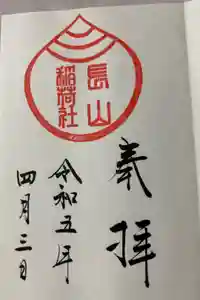 奉拝
長山
稲荷社
令和五年
四月三日